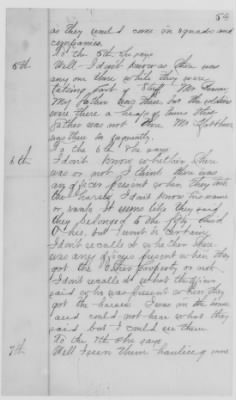 54
as they would come in squads and
companies.
To the 5th he says
5th Well I don't know as there was
any one there while they were
taking part of Stuff. Mr
My Father was there but the soldiers
were there a of times that
Father was not there Mr Matthew
was there frequently.
To the 6th he says
6th I don't know whether there
was or not I think there was
any officer present when they took
the horses, I don't know his name
or rank. It seems like they said
they belonged to the 10th
O but I won't be certain
I don't recollect whether there
was any officers present when they
got the other property or not.
I don't recollect what the officers
said who was present when they
got the horses. I was in the house
and could not hear what they
said, but I could see them.
To the 7th she says
7th Well I seen them hauling some